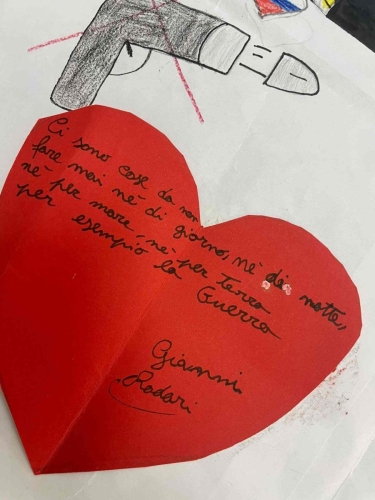 Ci sono cose da non
fare mai nè di giorno, nè di notte,
nè per mare, nè per terra
per esempio la Guerra
Gianni
Rodari